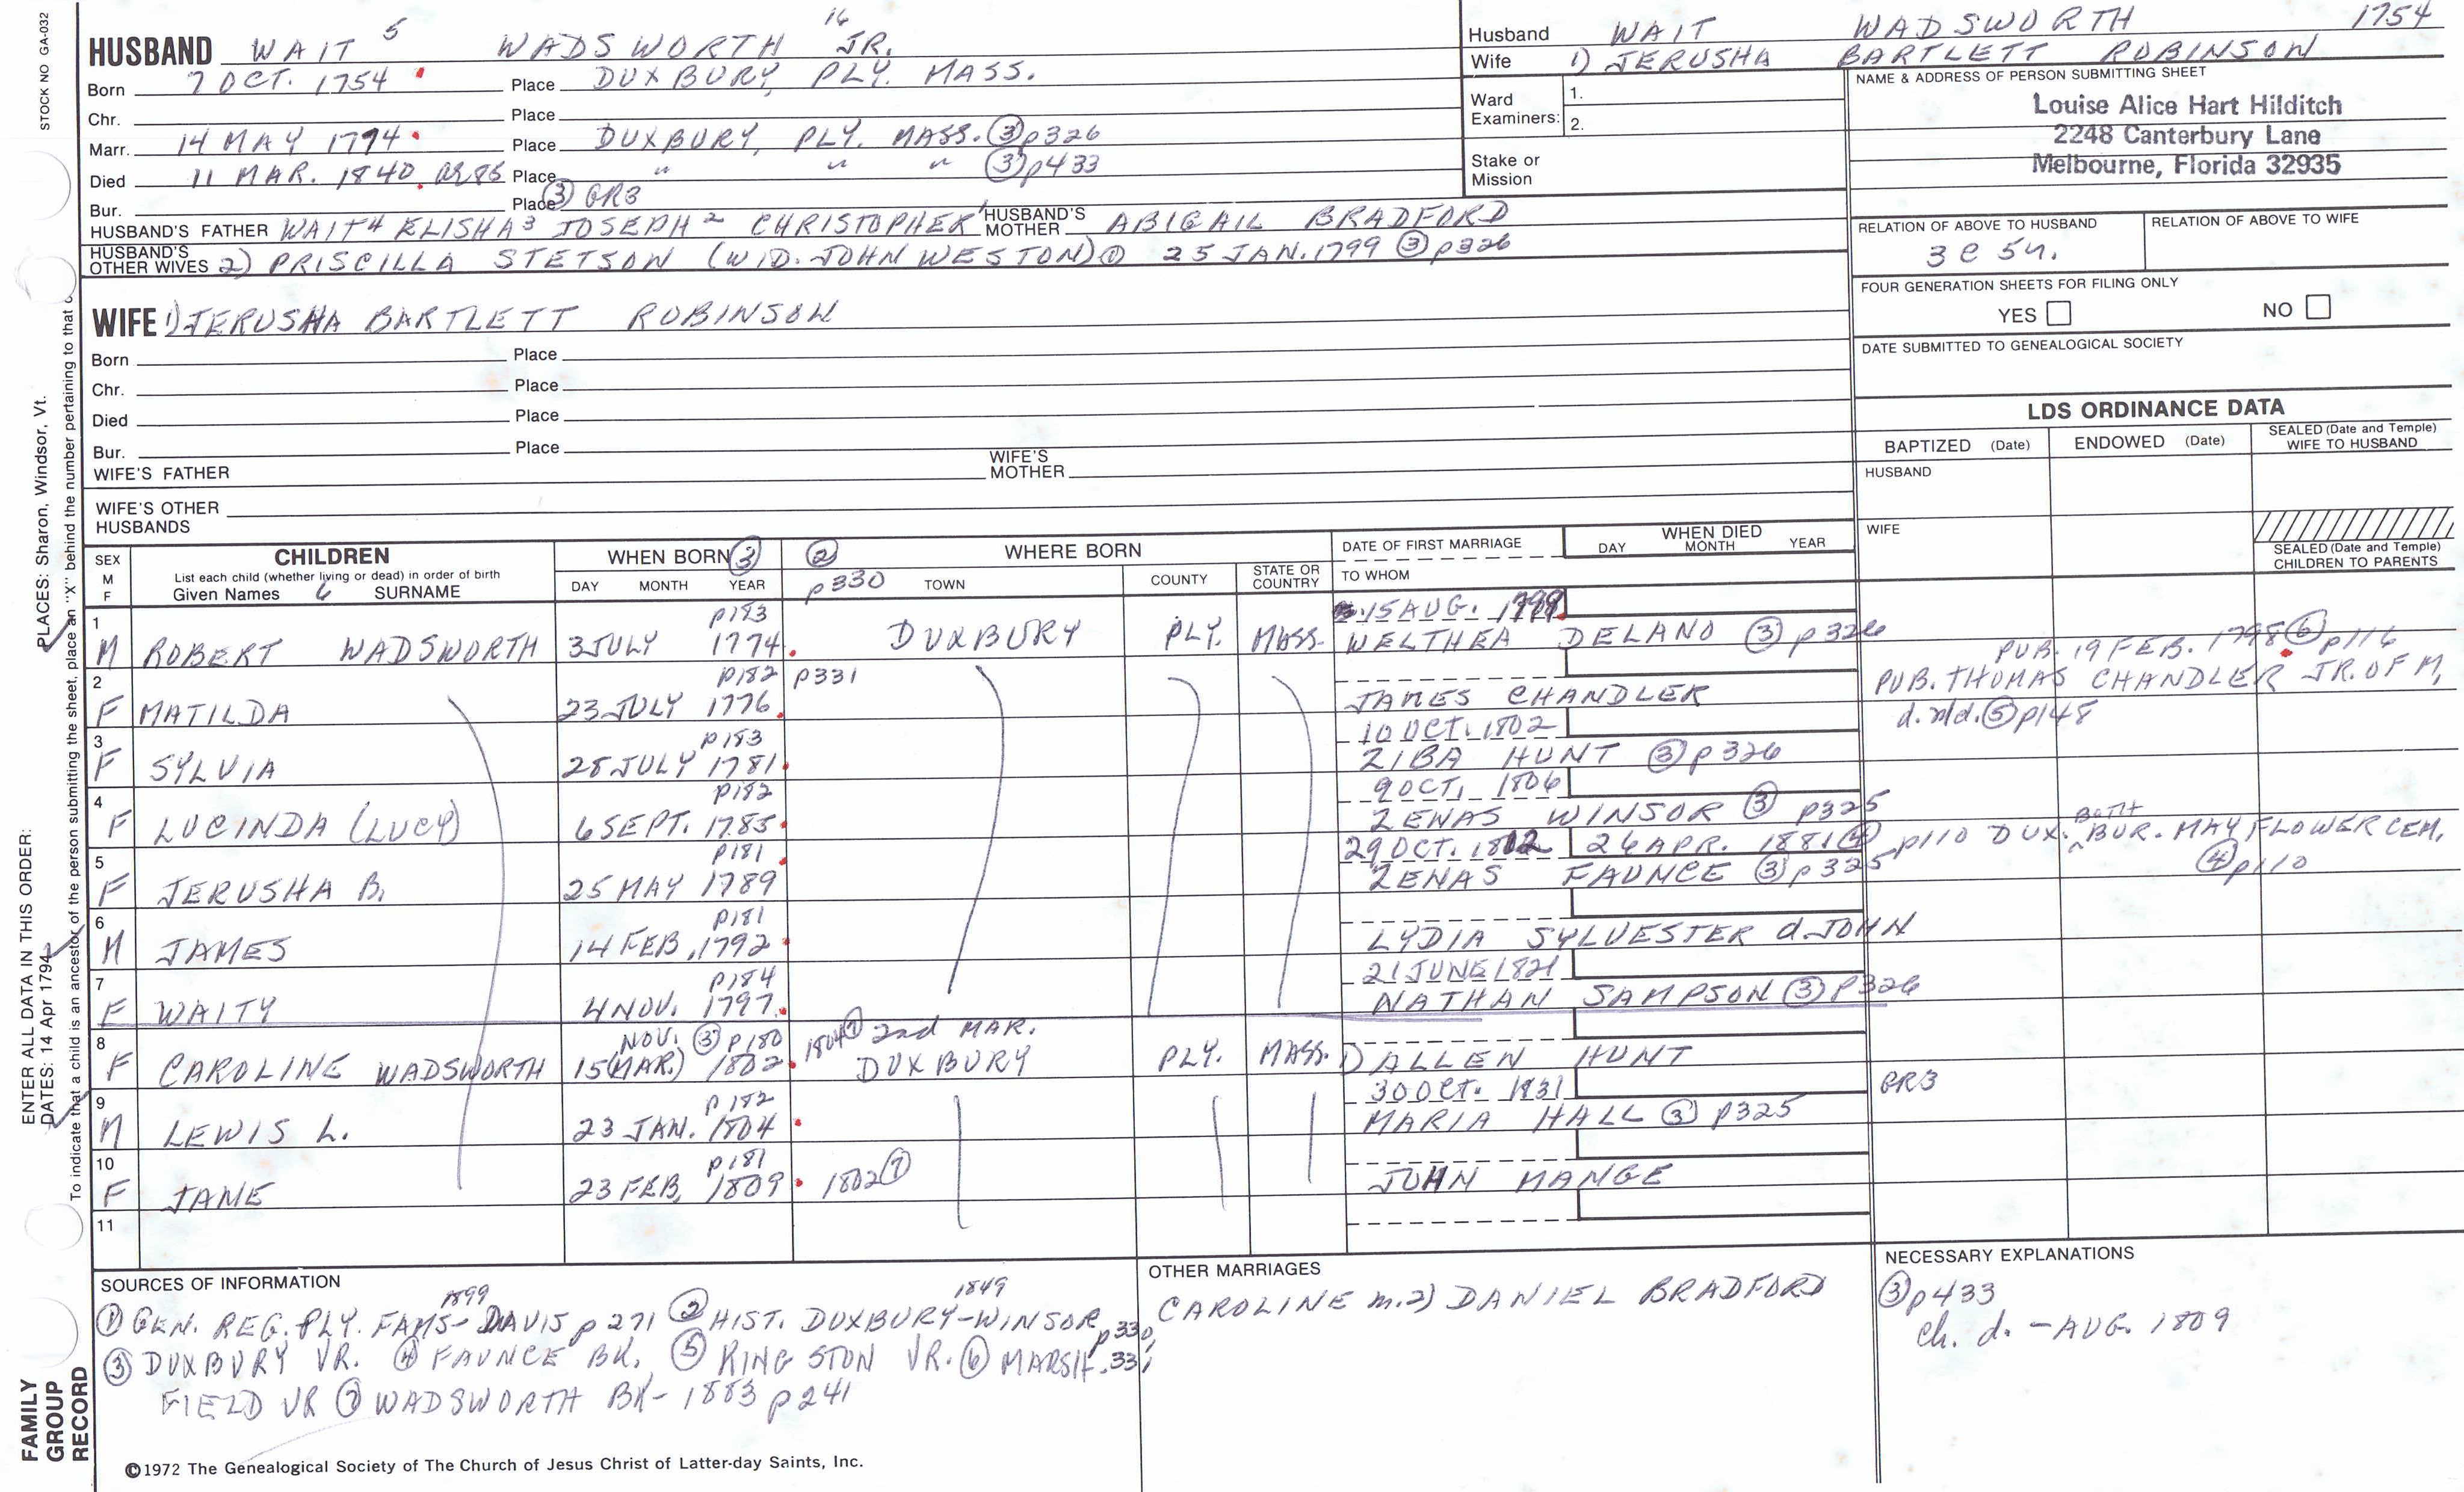 STOCK NO GA-032
16
HUSBAND WAIT 5 WADSWORTH JR.
Born 7 OCT. 1754 Place DUXBURY, PLY. MASS.
Chr. Place
Marr. 14 MAY 1774 Place DUXBURY, PLY. MASS. ③ p326
Died 11 MAR. 1840 ae 85 Place " " " ③ p433
Bur. Place ③ GR3
HUSBAND'S FATHER WAIT 4 ELISHA 3 JOSEPH 2 CHRISTOPHER 1 HUSBAND'S MOTHER ABIGAIL BRADFORD
HUSBAND'S OTHER WIVES 2) PRISCILLA STETSON (WID. JOHN WESTON) ① 25 JAN. 1799 ③ p326
WIFE 1) JERUSHA BARTLETT ROBINSON
Born Place
Chr. Place
Died Place
Bur. Place
WIFE'S FATHER WIFE'S MOTHER
WIFE'S OTHER HUSBANDS
Husband WAIT WADSWORTH 1754
Wife 1) JERUSHA BARTLETT ROBINSON
Ward Examiners: 1.
2.
Stake or Mission
NAME & ADDRESS OF PERSON SUBMITTING SHEET
Louise Alice Hart Hilditch
2248 Canterbury Lane
Melbourne, Florida 32935
RELATION OF ABOVE TO HUSBAND RELATION OF ABOVE TO WIFE
3 C 5 r.
FOUR GENERATION SHEETS FOR FILING ONLY
YES NO
DATE SUBMITTED TO GENEALOGICAL SOCIETY
LDS ORDINANCE DATA
BAPTIZED (Date) ENDOWED (Date) SEALED (Date and Temple) WIFE TO HUSBAND
HUSBAND
WIFE
SEALED (Date and Temple) CHILDREN TO PARENTS
SEX M F
CHILDREN
List each child (whether living or dead) in order of birth
Given Names 6 SURNAME
WHEN BORN ③
DAY MONTH YEAR
② p330
WHERE BORN
TOWN COUNTY STATE OR COUNTRY
DATE OF FIRST MARRIAGE
TO WHOM
WHEN DIED
DAY MONTH YEAR
p183 15 AUG. 1799
1 M ROBERT WADSWORTH 3 JULY 1774 DUXBURY PLY. MASS. WELTHEA DELANO ③ p326
PUB. 19 FEB. 1798 ⑥ p116
p182 p331
2 F MATILDA 23 JULY 1776 JAMES CHANDLER PUB. THOMAS CHANDLER JR. OF M,
d. nld. ⑤ p148
p183 10 OCT. 1802
3 F SYLVIA 28 JULY 1781 ZIBA HUNT ③ p326
p182 9 OCT. 1806
4 F LUCINDA (LUCY) 6 SEPT. 1785 ZENAS WINSOR ③ p325
p181 29 OCT. 1812 26 APR. 1881 ④ p110 DUX. BOTH BUR. MAYFLOWER CEM.
5 F JERUSHA B. 25 MAY 1789 ZENAS FAUNCE ③ p325 ④ p110
p181
6 M JAMES 14 FEB. 1792 LYDIA SYLVESTER d. JOHN
p184 21 JUNE 1821
7 F WAITY 4 NOV. 1797 NATHAN SAMPSON ③ P326
NOV. ③ p180 1804 ⑦ 2nd MAR.
8 F CAROLINE WADSWORTH 15 (MAR.) 1802 DUXBURY PLY. MASS. 1) ALLEN HUNT
p182 30 OCT. 1831 GR3
9 M LEWIS L. 23 JAN. 1804 MARIA HALL ③ p325
p181
10 F JANE 23 FEB. 1809 1802 ⑦ JOHN MANGE
11
SOURCES OF INFORMATION
① GEN. REG. PLY. FAMS - DAVIS 1899 p 271 ② HIST. DUXBURY-WINSOR 1849 p330, 331
③ DUXBURY VR. ④ FAUNCE BK. ⑤ KINGSTON VR. ⑥ MARSH-
FIELD VR ⑦ WADSWORTH BK - 1883 p241
OTHER MARRIAGES
CAROLINE m. 2) DANIEL BRADFORD
NECESSARY EXPLANATIONS
③ p433
ch. d. - AUG. 1809
©1972 The Genealogical Society of The Church of Jesus Christ of Latter-day Saints, Inc.
FAMILY GROUP RECORD
ENTER ALL DATA IN THIS ORDER:
DATES: 14 Apr 1794
PLACES: Sharon, Windsor, Vt.
To indicate that a child is an ancestor of the person submitting the sheet, place an "X" behind the number pertaining to that